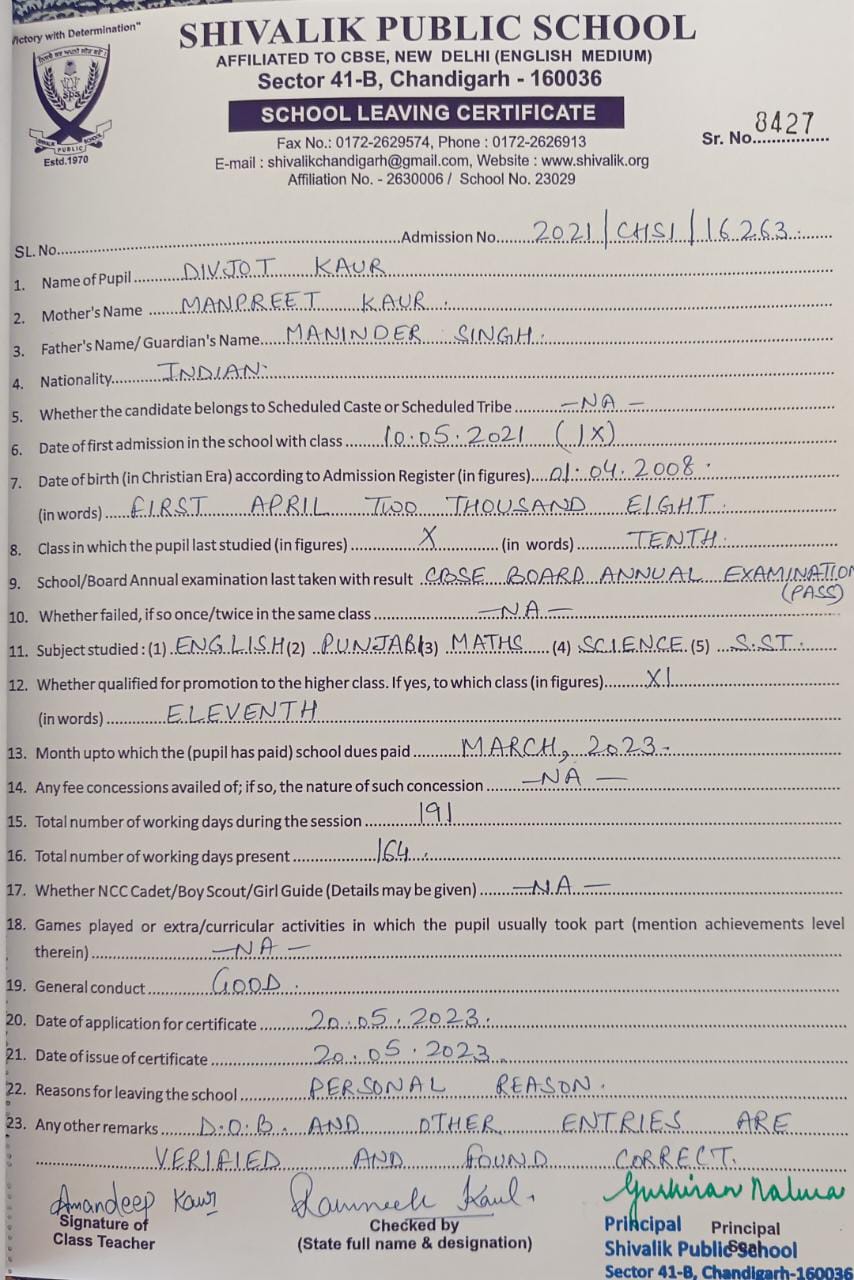 Victory with Determination"
SHIVALIK PUBLIC SCHOOL
AFFILIATED TO CBSE, NEW DELHI (ENGLISH MEDIUM)
Sector 41-B, Chandigarh - 160036
SCHOOL LEAVING CERTIFICATE
SPS
PUBLIC SCHOOL
Estd.1970
Fax No.: 0172-2629574, Phone : 0172-2626913
Sr. No. 8427
E-mail : shivalikchandigarh@gmail.com, Website : www.shivalik.org
Affiliation No. - 2630006 / School No. 23029
SL. No. Admission No. 2021/CHSI/16263.
1. Name of Pupil DIVJOT KAUR
2. Mother's Name MANPREET KAUR.
3. Father's Name/ Guardian's Name MANINDER SINGH.
4. Nationality INDIAN.
5. Whether the candidate belongs to Scheduled Caste or Scheduled Tribe —NA—
6. Date of first admission in the school with class 10.05.2021 (IX)
7. Date of birth (in Christian Era) according to Admission Register (in figures) 01.04.2008.
(in words) FIRST APRIL TWO THOUSAND EIGHT.
8. Class in which the pupil last studied (in figures) X (in words) TENTH.
9. School/Board Annual examination last taken with result CBSE BOARD ANNUAL EXAMINATION
(PASS)
10. Whether failed, if so once/twice in the same class —NA—
11. Subject studied : (1) ENGLISH (2) PUNJABI (3) MATHS (4) SCIENCE (5) S.ST.
12. Whether qualified for promotion to the higher class. If yes, to which class (in figures) XI
(in words) ELEVENTH
13. Month upto which the (pupil has paid) school dues paid MARCH, 2023.
14. Any fee concessions availed of; if so, the nature of such concession —NA—
15. Total number of working days during the session 191
16. Total number of working days present 164.
17. Whether NCC Cadet/Boy Scout/Girl Guide (Details may be given) —NA—
18. Games played or extra/curricular activities in which the pupil usually took part (mention achievements level
therein) —NA—
19. General conduct GOOD.
20. Date of application for certificate 20.05.2023.
21. Date of issue of certificate 20.05.2023.
22. Reasons for leaving the school PERSONAL REASON.
23. Any other remarks D.O.B. AND OTHER ENTRIES ARE
VERIFIED AND FOUND CORRECT.
Amandeep Kaur
Signature of
Class Teacher
Kaul
Checked by
(State full name & designation)
Principal Principal
Shivalik Public School
Seal
Sector 41-B, Chandigarh-160036